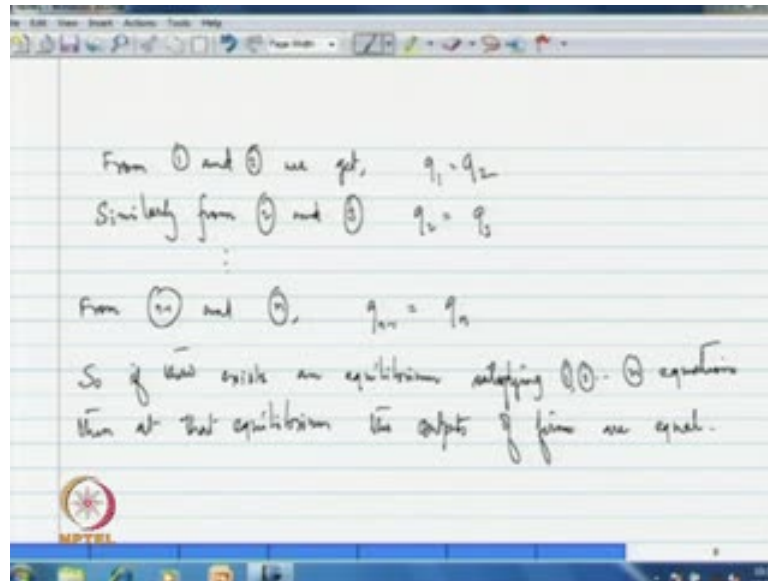 Edit View Insert Actions Tools Help
Page Width
From ① and ② we get, q₁ = q₂
Similarly from ② and ③ q₂ = q₃
⋮
From (n-1) and (n), qₙ₋₁ = qₙ
So if there exists an equilibrium satisfying ①, ② ... (n) equations
then at that equilibrium the outputs of firms are equal.
NPTEL